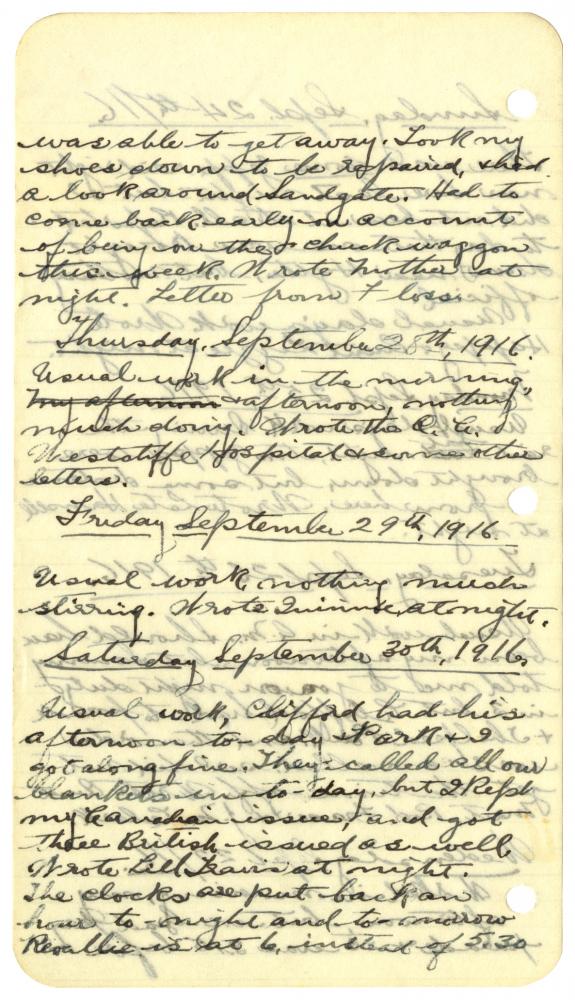 was able to get away. Took my
shoes down to be repaired, & had
a look around Sandgate. Had to
come back early on account
of being on the chuck waggon
this week. Wrote Mother at
night. Letter from Floss.
Thursday, September 28th, 1916.
Usual work in the morning,
my afternoon & afternoon, nothing
much doing. Wrote the C.O.
Westcliffe Hospital & some other
letters.
Friday September 29th, 1916.
Usual work, nothing much
stirring. Wrote at night.
Saturday September 30th, 1916.
Usual work, Clifford had his
afternoon to-day & Park & I
got along fine. They called all our
blankets in to-day, but I kept
my Canadian issue, and got
three British issued as well.
Wrote Lill Travis at night.
The clocks are put back an
hour to-night and to-morrow
Revallie is at 6, instead of 5.30